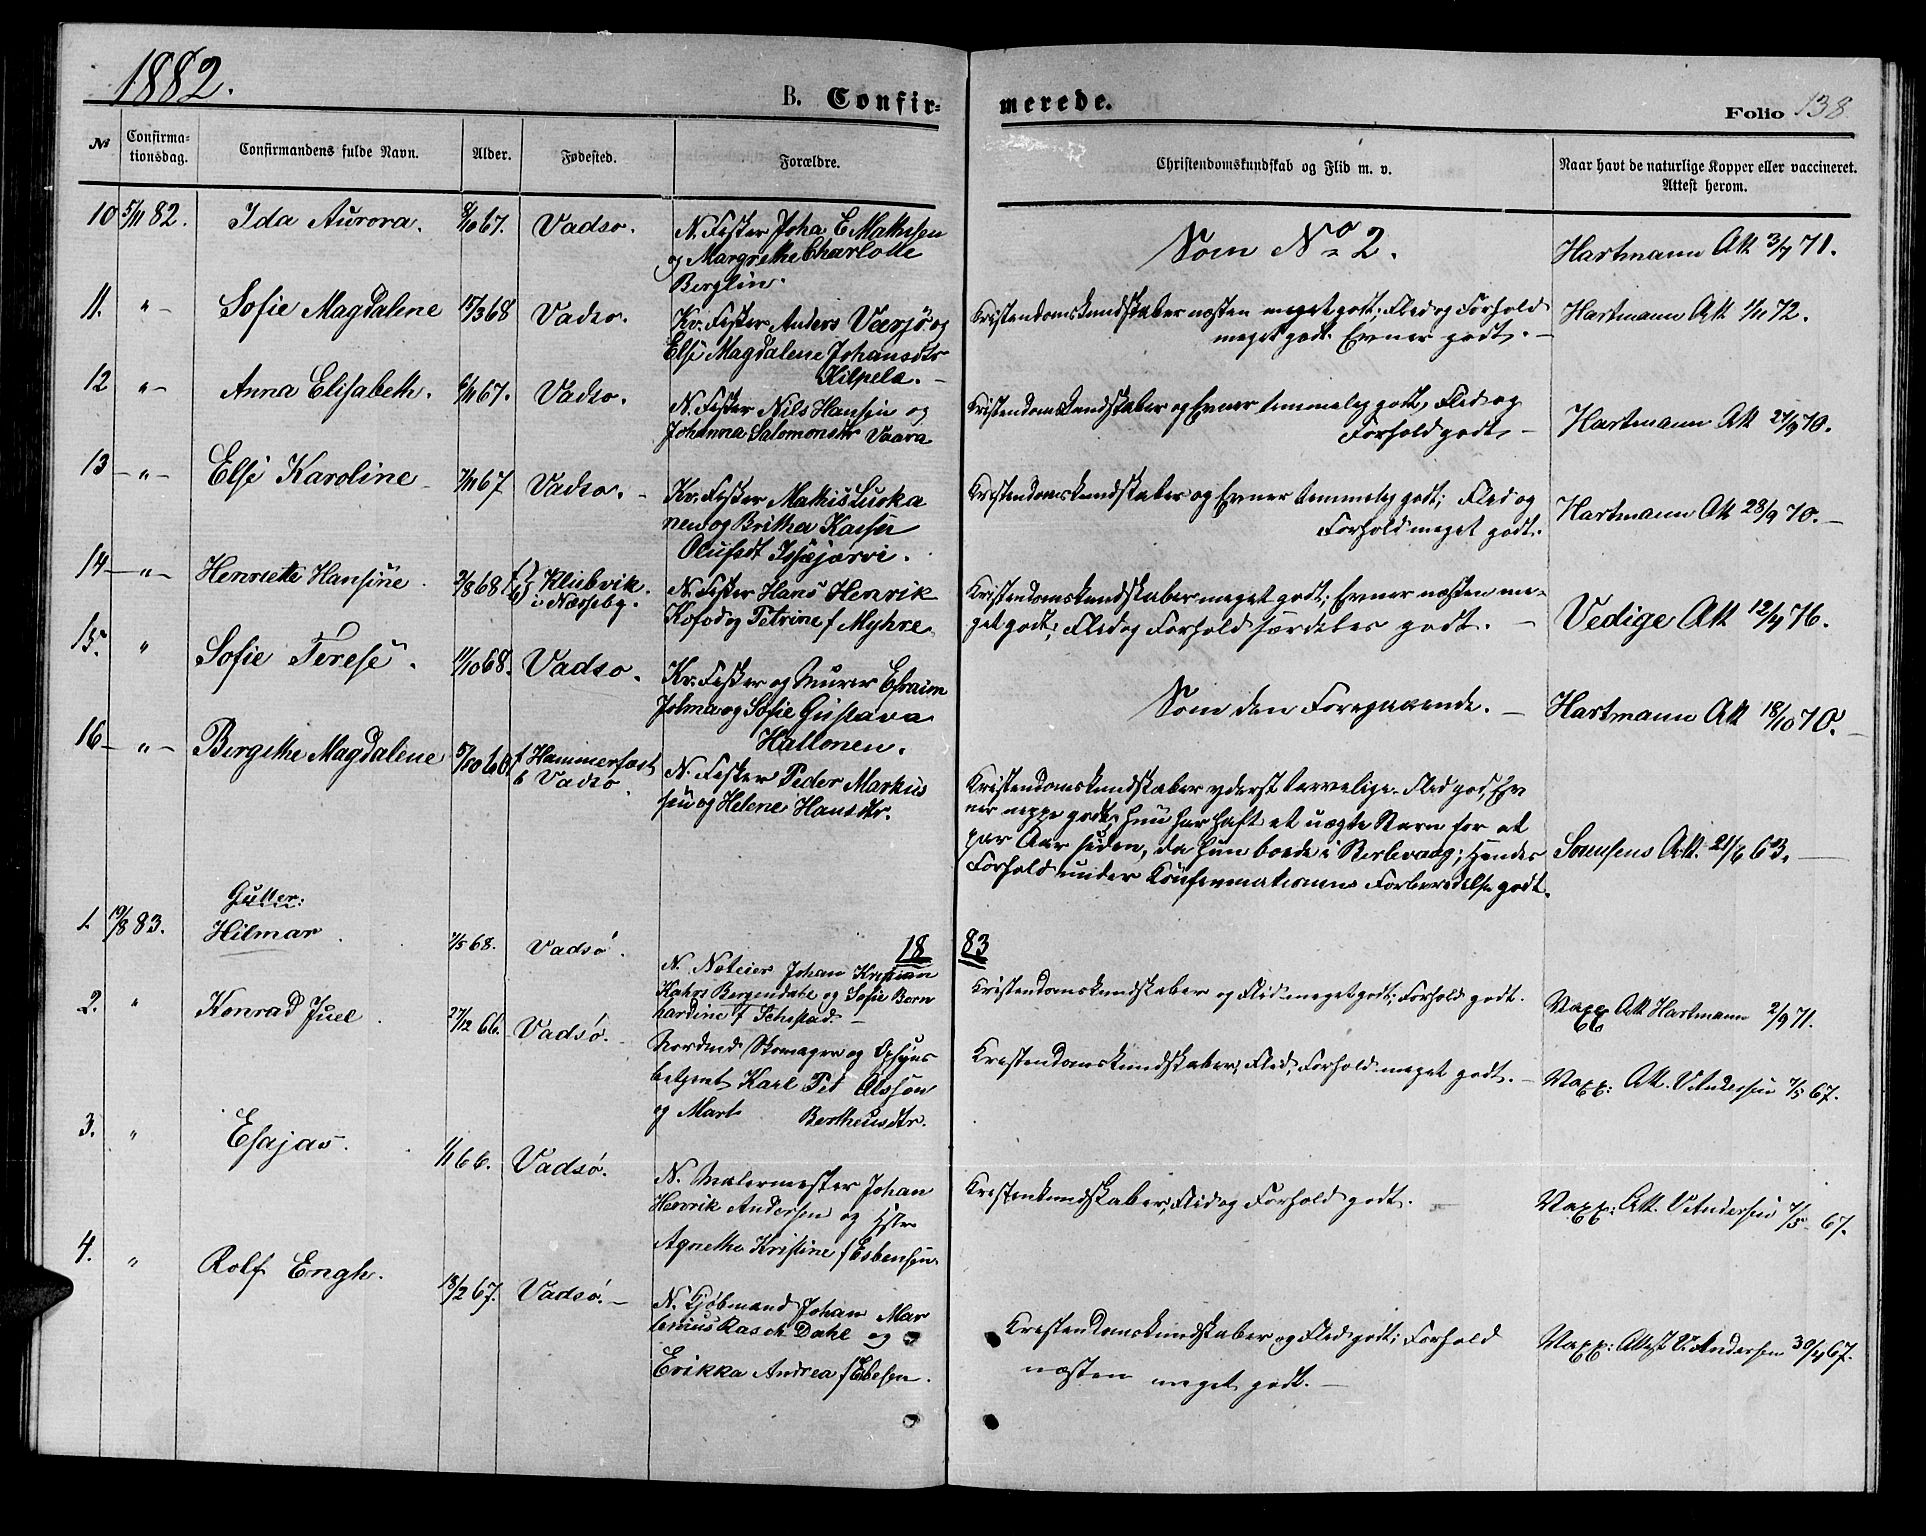 1882.
B. Confir-
merede.
Folio 138
No
Confirma-
tionsdag.
Confirmandens fulde Navn.
Alder.
Fødested.
Forældre.
Christendomskundskab og Flid m. v.
Naar havt de naturlige Kopper eller vaccineret.
Attest herom.
10 5/11 82. Ida Aurora. 8/10 67. Vadsø. N. Fisker Joha E Mathisen
og Margrethe Charlotte
Berglin.
Som No 2.
Hartmann Att 3/7 71.
11. " Sofie Magdalene 15/3 68 Vadsø. Kv. Fisker Anders Værjø og
Else Magdalene Johansdtr
Kilpela.
Kristendomskundskaber næsten meget godt; Flid og Forhold
meget godt. Evner godt.
Hartmann Att 1/11 72.
12 " Anna Elisabeth. 6/11 67. Vadsø. N. Fisker Nils Hansen og
Johanna Salomonsdtr Vaara
Kristendomskundskaber og Evner temmelig godt, Flid og
Forhold godt
Hartmann Att 27/9 70.
13 " Else Karoline 7/11 67 Vadsø. Kv. Fisker Mathis Luska
nen og Britha Kaisa
Olufsdt
Kristendomskundskaber og Evner temmelig godt; Flid og
Forhold meget godt.
Hartmann Att 28/9 70.
14 " Henriette Hansine. 2/8 68 Klubvik
i Næsseby. N. Fisker Hans Henrik
Kofod og Petrine f Myhre
Kristendomskundskaber meget godt; Evner næsten me-
get godt; Flid og Forhold særdeles godt.
Vedige Att 12/7 76.
15. " Sofie Terese. 11/10 68. Vadsø. Kv. Fisker og Murer Efraim
Jolma og Sofie Gustava
Hallonen.
Som den Foregaaende.
Hartmann Att 18/10 70.
16 " Bergithe Magdalene f Hammerfest
b Vadsø. N. Fisker Peder Markus
sen og Helene Hansdtr.
Kristendomskundskaber yderst tarvelige. Flid god, Ev
ner neppe godt; hun har haft et uægte Barn for et
par Aar siden, da hun boede i Berlevaag; Hendes
Forhold under Konfirmationens Forberedelse godt.
Sørensens Att. 21/6 63.
1883
Gutter:
1. 19/8 83. Hilmar 7/5 68. Vadsø. N. Noteier Johan Kristian
Kahrs Bergendahl og Sofie Born
hardine f Sehested.
Kristendomskundskaber og Flid meget godt; Forhold godt.
Vaxx Att Hartmann 2/9 71.
2. " Konrad Juel 27/12 66. Vadsø. Nordmd Skomager og Opsyns
betjent Karl Pet Olsson
og Mart Bertheusdtr.
Kristendomskundskaber, Flid, Forhold meget godt.
Vaxx: Att. V Andersen 7/5 67.
3. " Esajas. 1/1 66. Vadsø. N. Malermester Johan
Henrik Andersen og Hstr
Agnethe Kristine f Esbensen.
Kristenkundskaber, Flid og Forhold godt.
Vaxx: Att. V Andersen 7/5 67.
4. " Rolf Engh. 18/2 67. Vadsø. N. Kjøbmand Johan Mar
tenius Rasch Dahl og
Erikka Andrea f Ebesen.
Kristendomskundskaber og Flid godt; Forhold
næsten meget godt.
Vaxx: Attest V Andersen 30/4 67.